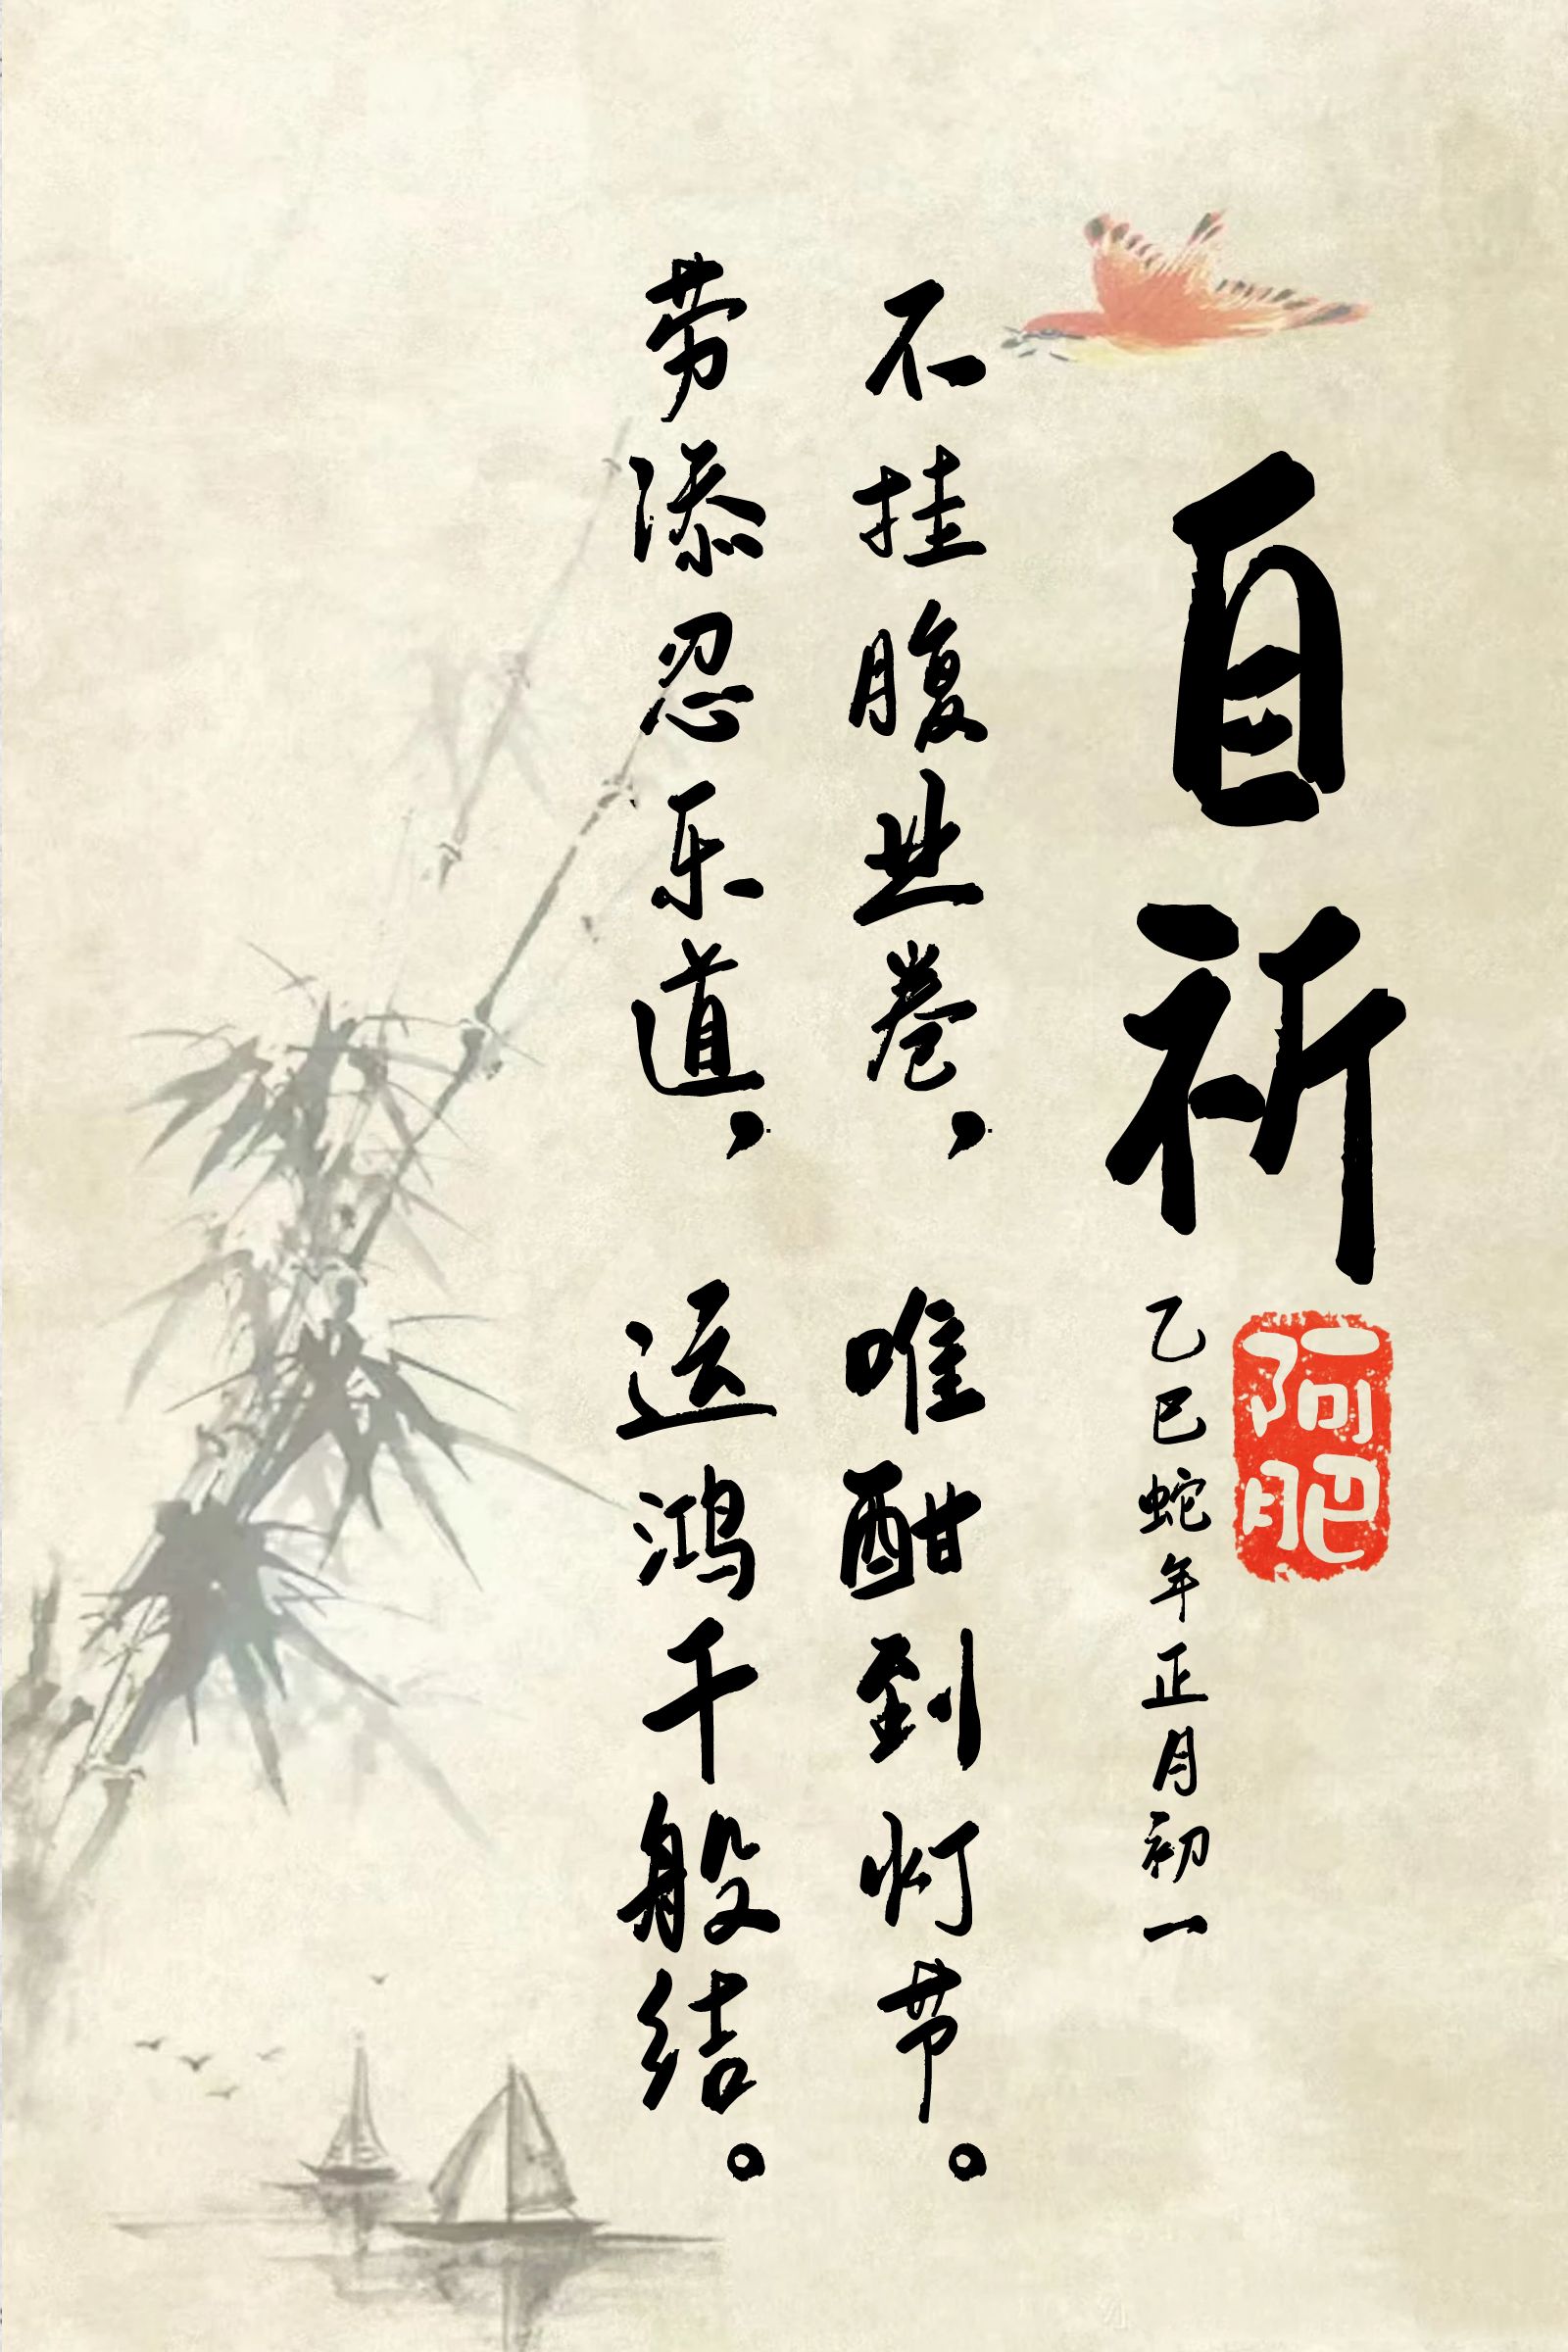 自祈
乙巳蛇年正月初一
阿肥
不挂腹业卷，唯酣到灯节。
劳添忍乐道，运鸿千般结。